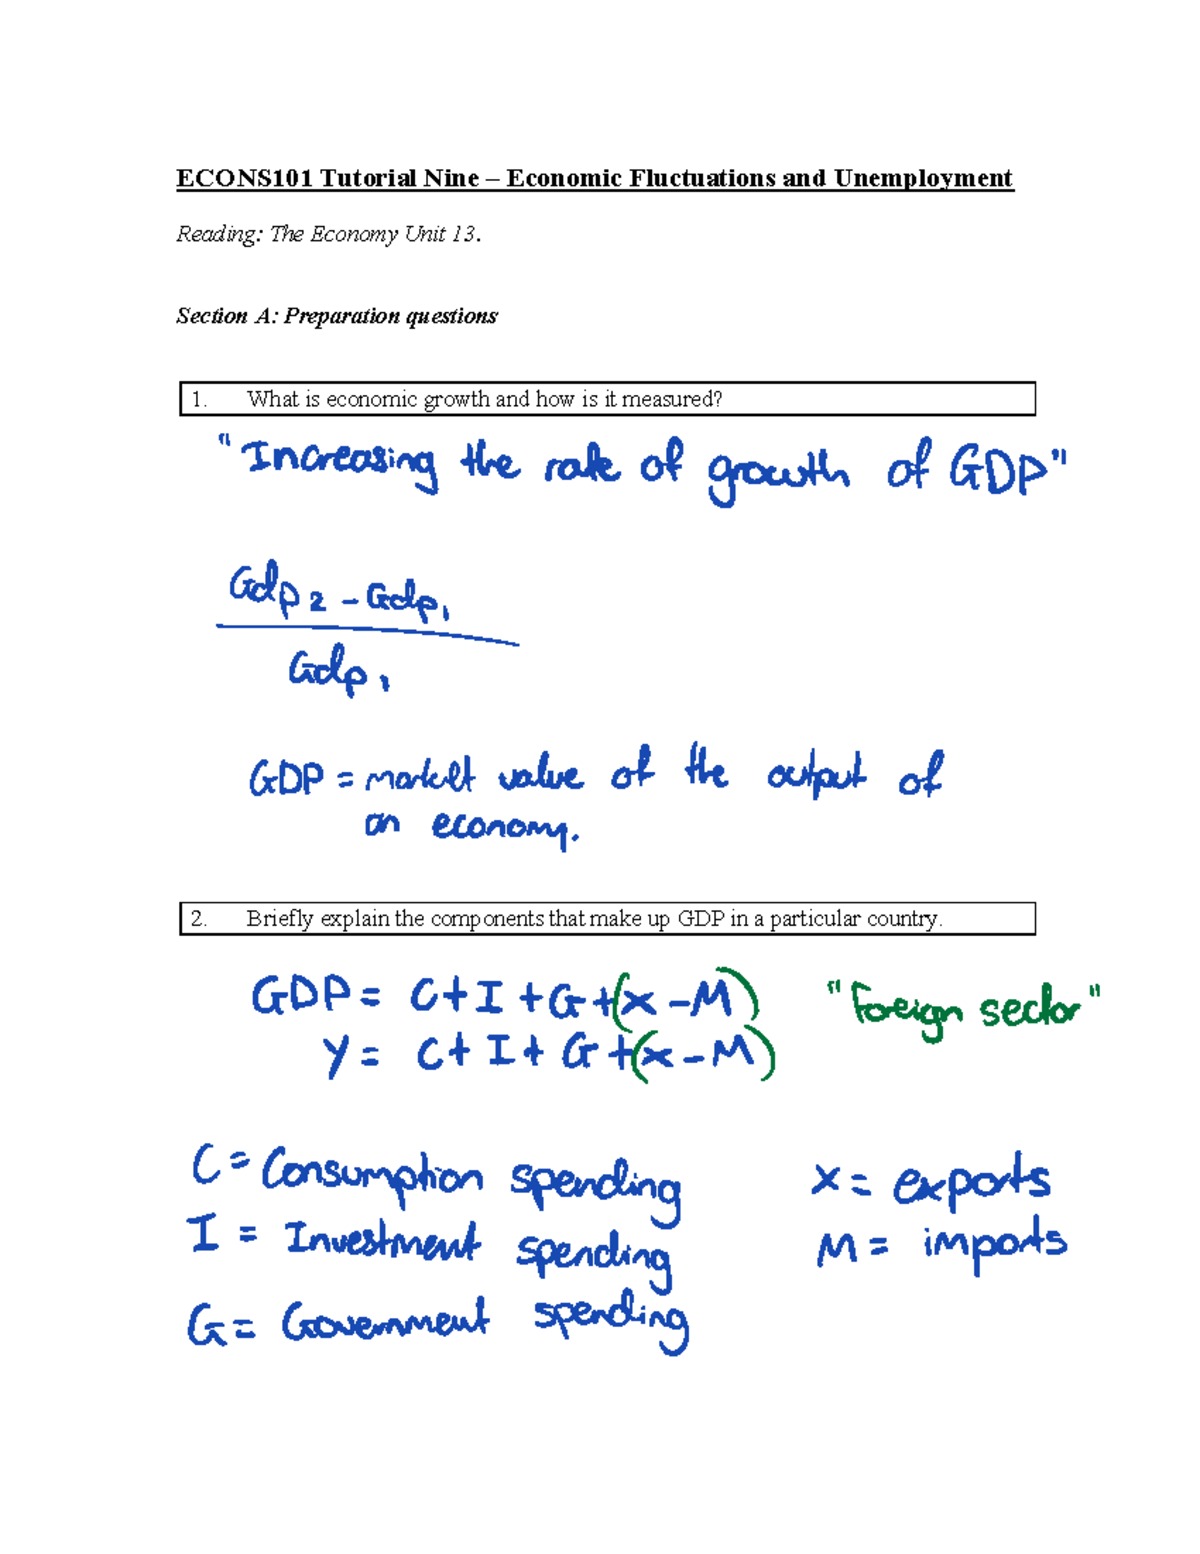 ECONS101 Tutorial Nine – Economic Fluctuations and Unemployment
Reading: The Economy Unit 13.
Section A: Preparation questions
1. What is economic growth and how is it measured?
"Increasing the rate of growth of GDP"
Gdp2 - Gdp1
Gdp1
GDP = market value of the output of
an economy.
2. Briefly explain the components that make up GDP in a particular country.
GDP = C + I + G + (x - M) "Foreign sector"
Y = C + I + G + (x - M)
C = Consumption spending
I = Investment spending
G = Government spending
x = exports
M = imports